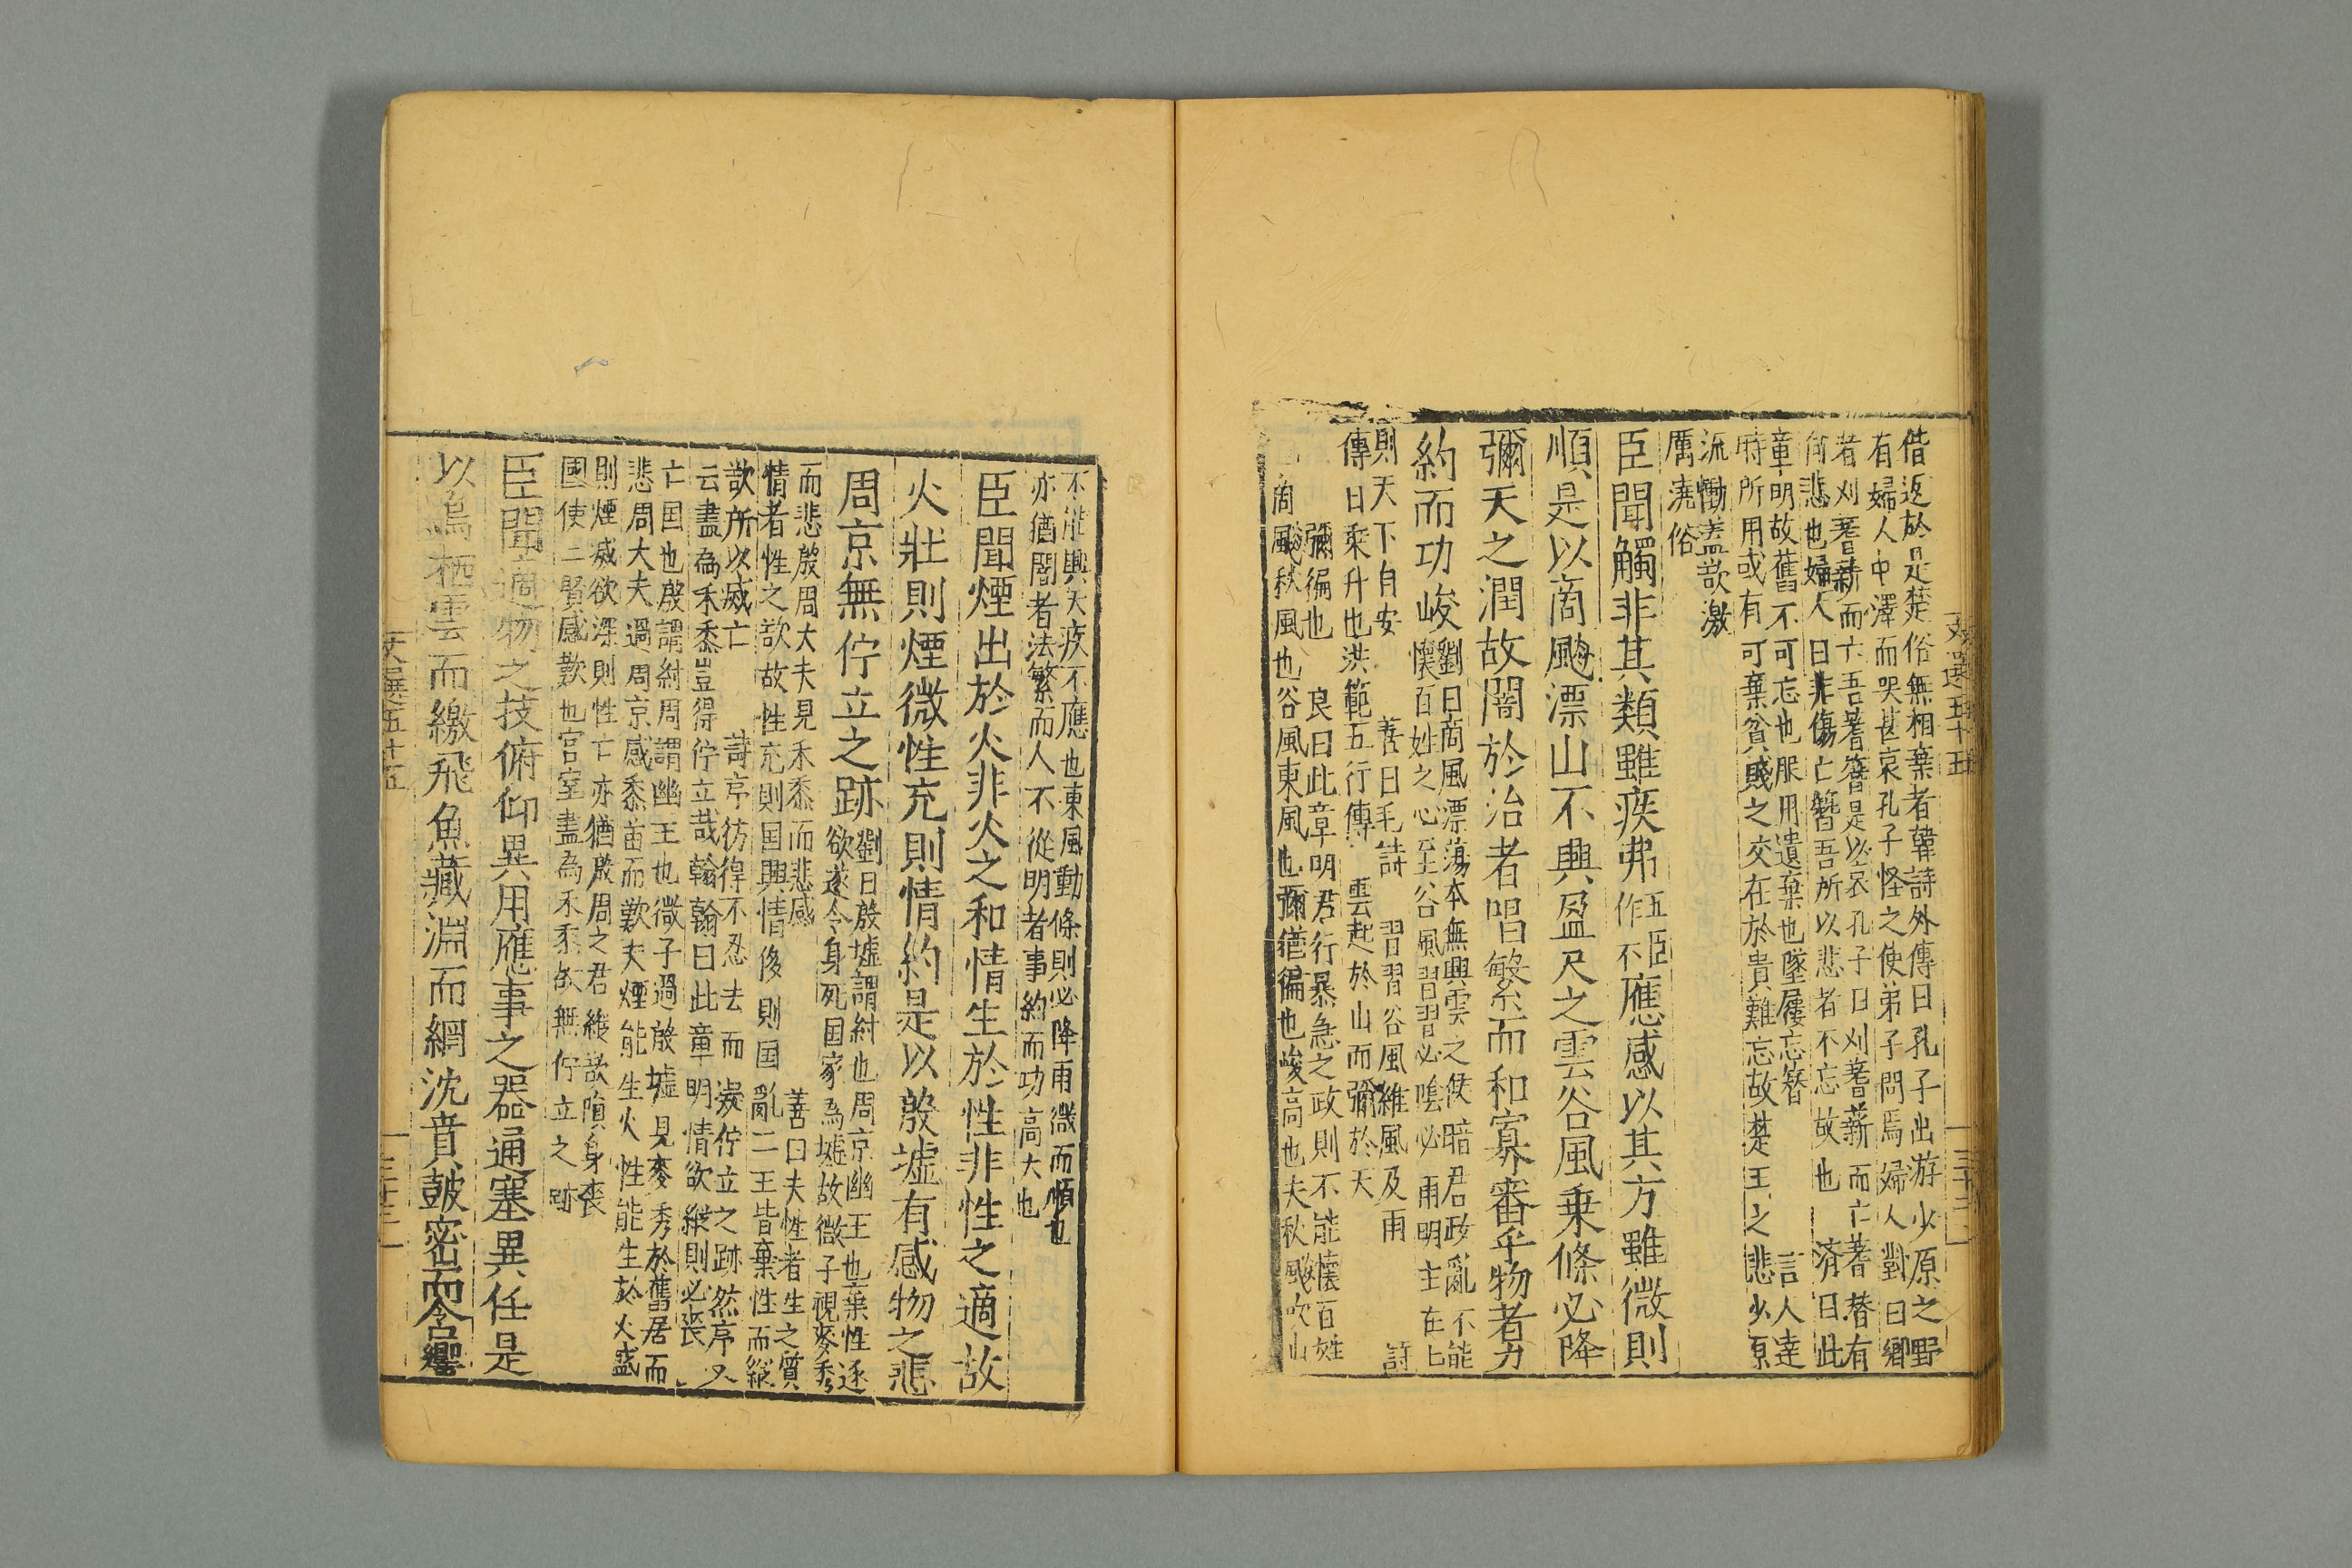 偕返於是楚俗無相棄者韓詩外傳曰孔子出游少原之野
有婦人中澤而哭甚哀孔子怪之使弟子問焉婦人對曰鄉
者刈蓍薪而亡吾蓍簪是以哀孔子曰刈蓍薪而亡蓍簪有
何悲也婦人曰非傷亡簪吾所以悲者不忘故也 濟曰此
章明故舊不可忘也服用遺棄也墜屨忘簪 言人達
時所用或有可棄貧賤之交在於貴難忘故楚王之悲少原
流慟盖欲激
厲澆俗
臣聞觸非其類雖疾弗五臣作不應感以其方雖微則
順是以商飇漂山不興盈尺之雲谷風乗條必降
彌天之潤故闇於治者唱繁而和寡審乎物者力
約而功峻劉曰商風漂蕩本無興雲之候暗君政亂不能
懷百姓之心至谷風習習必陰必雨明主在上
則天下自安 善曰毛詩 習習谷風維風及雨 詩
傳曰乘升也洪範五行傳 雲起於山而彌於天
彌徧也 良曰此章明君行暴急之政則不能懷百姓
商飇秋風也谷風東風也彌猶徧也峻高也夫秋飇吹山
文選五十五
不能興天疾不應也東風動條則必降雨微而順也
亦猶闇者法繁而人不從明者事約而功高大也
臣聞煙出於火非火之和情生於性非性之適故
火壯則煙微性充則情約是以殷墟有感物之悲
周京無佇立之跡劉曰殷墟謂紂也周京幽王也棄性逐
欲遂令身死国家為墟故微子視麥秀
而悲殷周大夫見禾黍而悲感 善曰夫性者生之質
情者性之欲故性充則国興情侈則国亂二王皆棄性而縱
欲所以滅亡 詩序彷徨不忍去而 凝佇立之跡然序又
云盡為禾黍豈得佇立哉翰翰曰此章明情欲縱則必喪
亡国也殷謂紂周謂幽王也微子過殷墟見麥秀於舊居而
悲周大夫過周京感黍苗而歎夫煙能生火性能生於火盛
則煙滅欲深則性亡亦猶殷周之君縱欲隕身喪
國使二賢感歎也宮室盡為禾黍故無佇立之跡
臣聞適物之技俯仰異用應事之器通塞異任是
以鳥栖雲而繳飛魚藏淵而網沈賁鼓密而含響
文選五十五